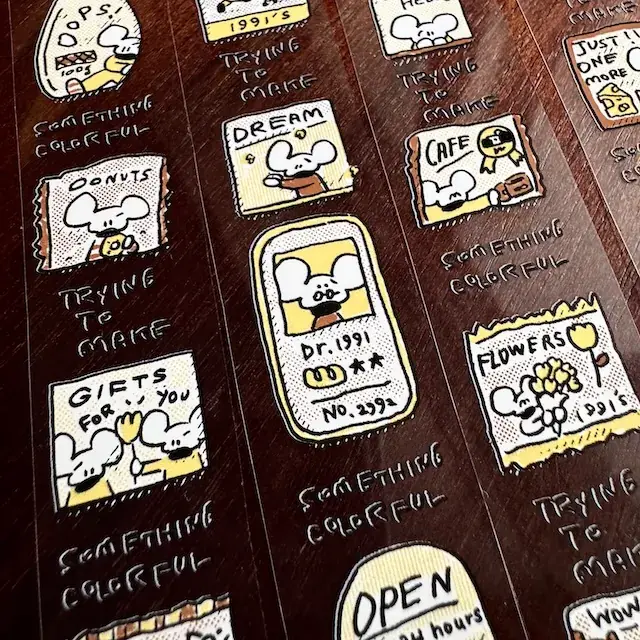 OOPS!
100%
SOMETHING
COLORFUL
DONUTS
TRYING
TO
MAKE
GIFTS
FOR YOU
SOMETHING
COLORFUL
1991'S
TRYING
TO
MAKE
DREAM
Dr. 1991
No. 2992
SOMETHING
COLORFUL
OPEN
hours
TRYING
TO
MAKE
CAFE
SOMETHING
COLORFUL
FLOWERS
1991's
TRYING
TO
MAKE
JUST
ONE
MORE